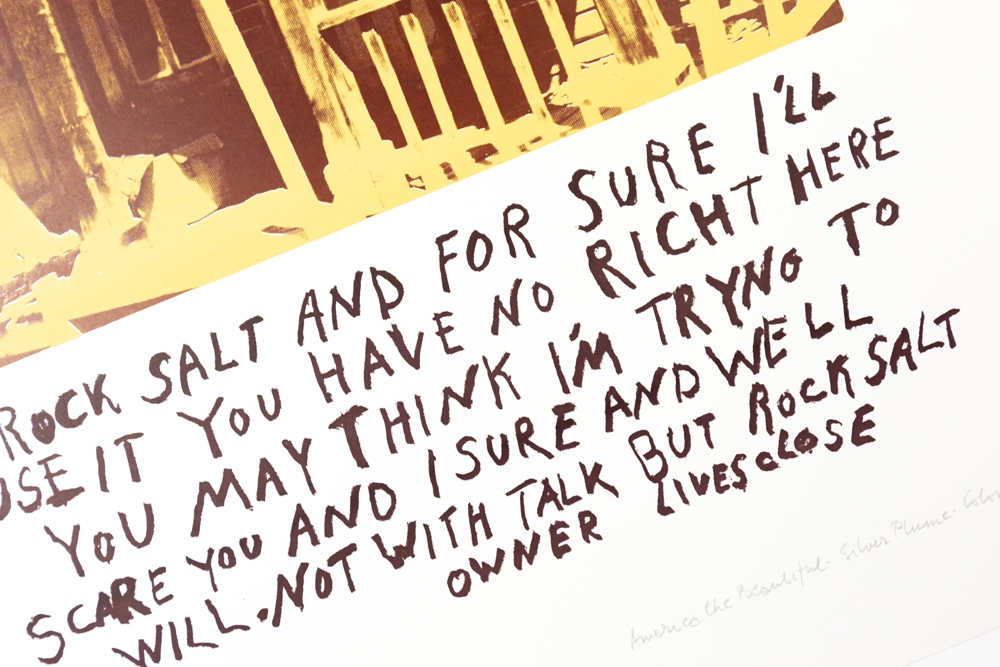 ROCK SALT AND FOR SURE I'LL
USE IT YOU HAVE NO RIGHT HERE
YOU MAY THINK I'M TRYNG TO
SCARE YOU AND I SURE AND WELL
WILL. NOT WITH TALK BUT ROCK SALT
OWNER LIVES CLOSE
America the Beautiful - Silver Plume - Colo